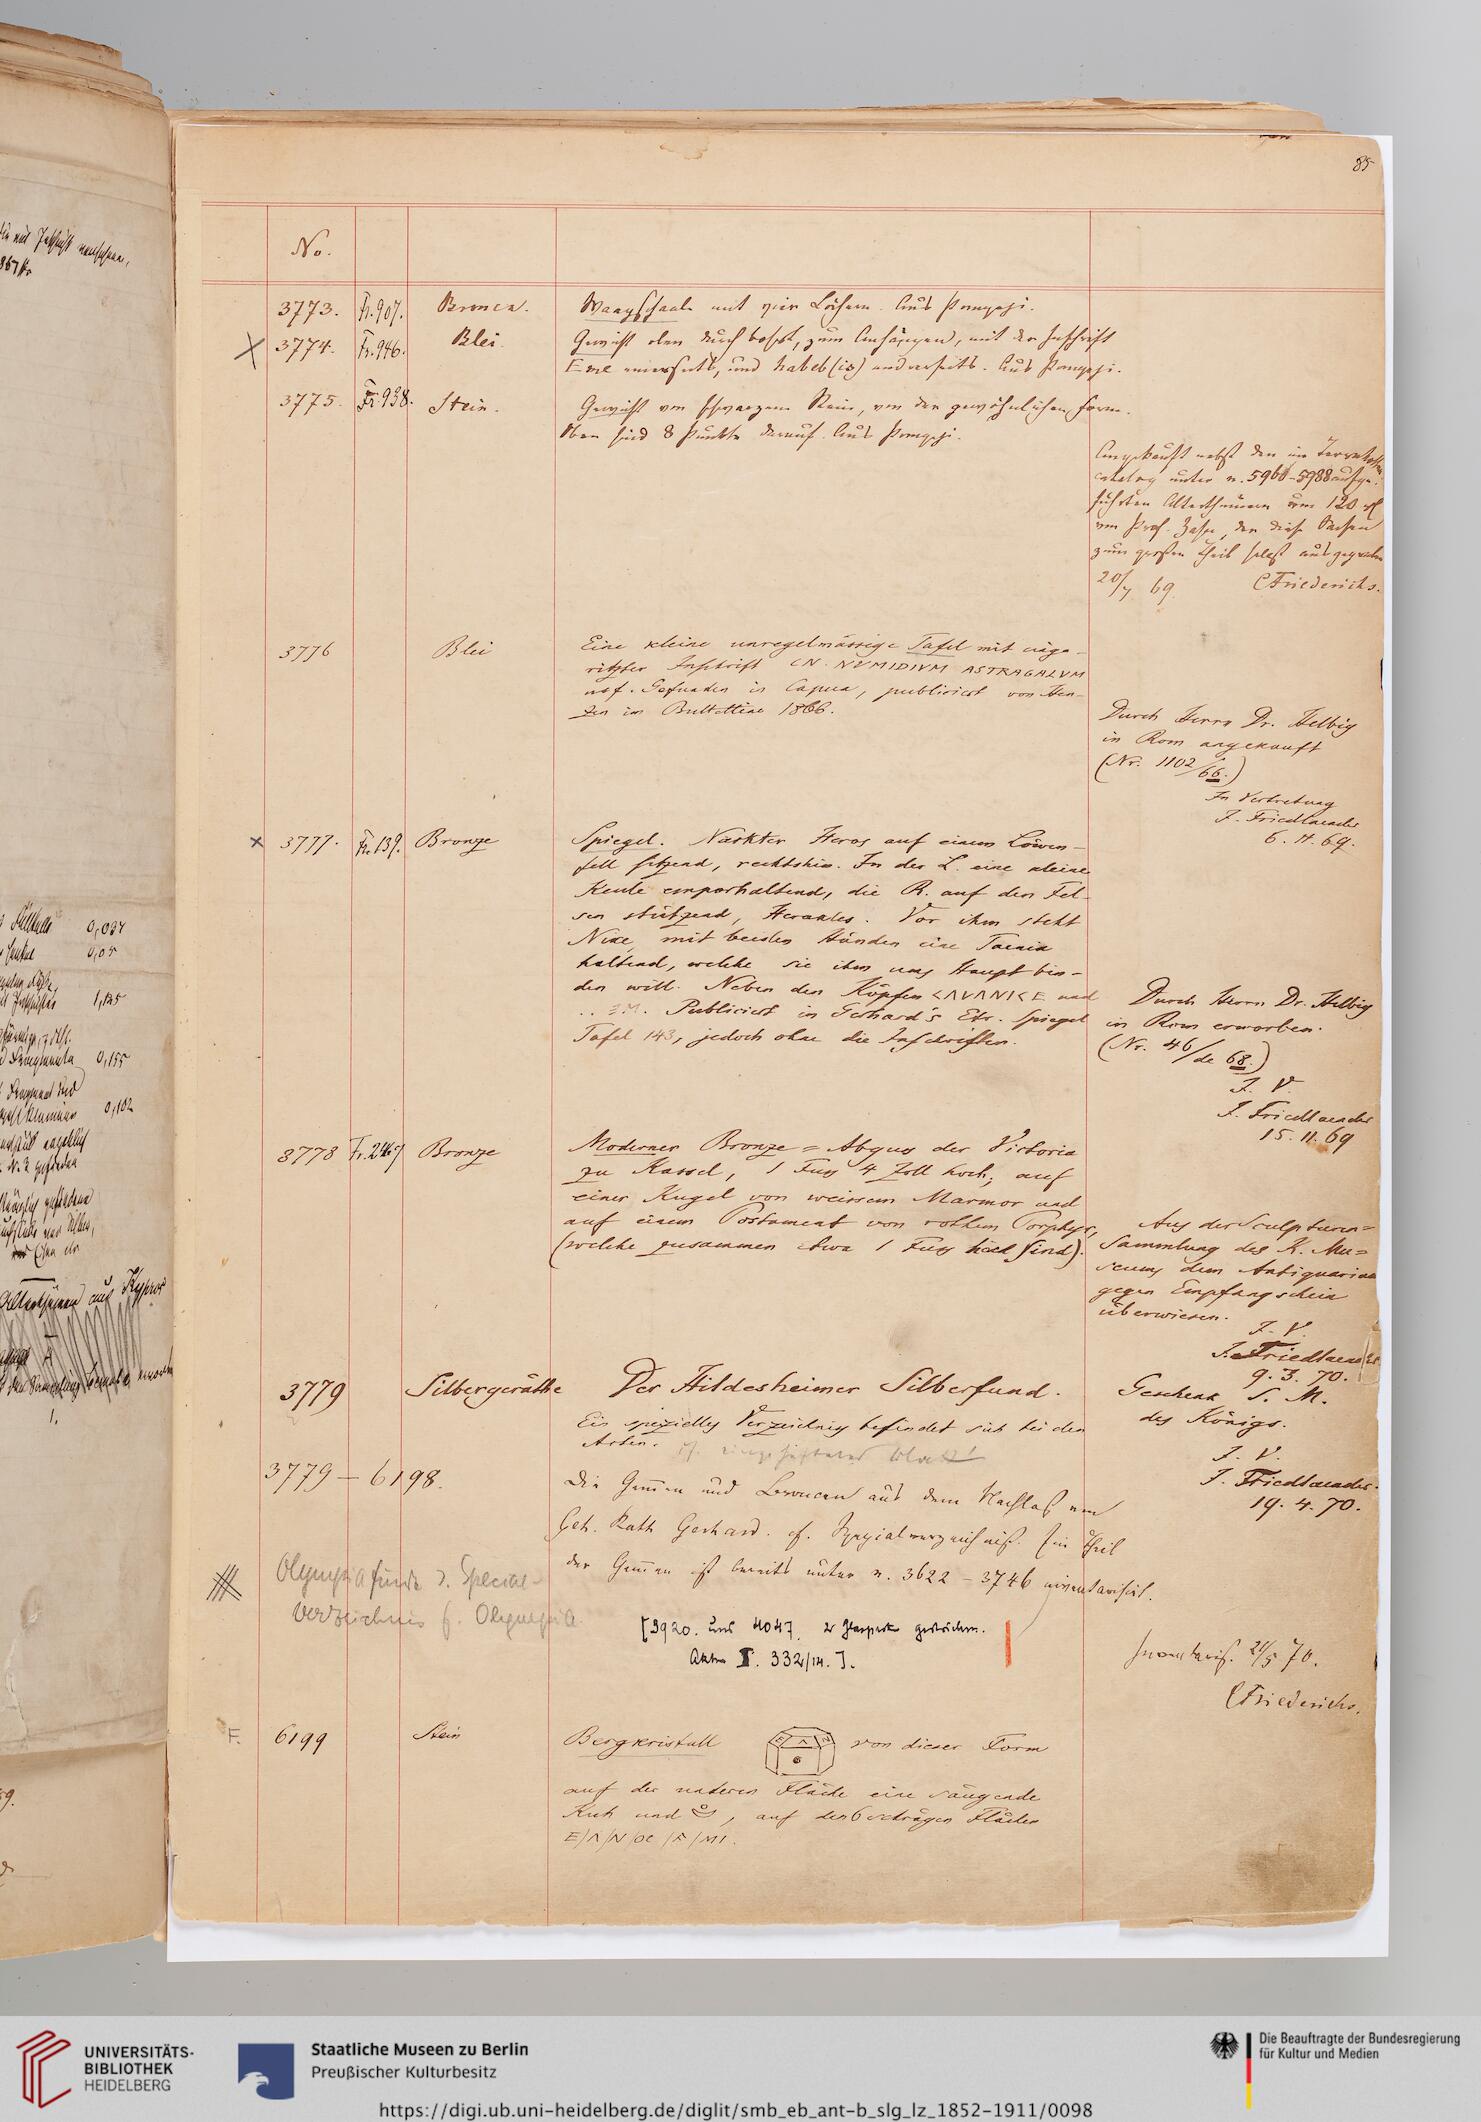 85
No.
3773. Fr. 907. Bronce. Waagschaale mit vier Löchern. Aus Pompeji.
3774. Fr. 946. Blei. Gewicht oben durchbohrt, zum Anhängen, mit der Inschrift
Eme einerseits, und habeb(is) anderseits. Aus Pompeji.
3775. Fr. 938. Stein. Gewicht von schwarzem Stein, von der gewöhnlichen Form.
Oben sind 8 Punkte darauf. Aus Pompeji.
Angekauft nebst den im Terracotten
catalog unter n. 5960-5988 aufge-
führten Alterthümern um 120
von Prof. Zahn, der diese Sachen
zum großen Theil selbst ausgegraben
20/7 69. CFriederichs.
3776 Blei Eine kleine unregelmässige Tafel mit einge-
ritzter Inschrift CN. NVMIDIVM ASTRAGALVM
usf. Gefunden in Capua, publicirt von Hen-
zen im Bullettino 1866.
Durch Herrn Dr. Helbig
in Rom angekauft
(Nr. 1102/66.)
In Vertretung
J. Friedlaender
6. 11. 69.
3777. Fr. 139. Bronze Spiegel. Nackter Heros auf einem Löwen-
fell sitzend, rechtshin. In der L. eine kleine
Keule emporhaltend, die R. auf den Fel-
sen stützend, Herakles. Vor ihm steht
Nike, mit beiden Händen eine Taenia
haltend, welche sie ihm ums Haupt bin-
den will. Neben den Köpfen und
Publicirt in Gerhard's Etr. Spiegel
Tafel 143, jedoch ohne die Inschriften.
Durch Herrn Dr. Helbig
in Rom erworben.
(Nr. 46/de 68.)
I. V.
J. Friedlaender
15. 11. 69
3778 Fr. 2467 Bronze Moderner Bronze-Abguss der Victoria
zu Kassel, 1 Fuss 4 Zoll hoch, auf
einer Kugel von weissem Marmor und
auf einem Postament von rothem Porphyr,
(welche zusammen etwa 1 Fuss hoch sind).
Aus der Sculpturen-
Sammlung des K. Mu-
seums dem Antiquarium
gegen Empfangschein
überwiesen.
I. V.
J. Friedlaender
9. 3. 70.
3779 Silbergeräthe Der Hildesheimer Silberfund.
Ein spezielles Verzeichniss befindet sich bei den
Acten. cf. eingehefteter Blatt!
Geschenk S. M.
des Königs.
I. V.
J. Friedlaender.
19. 4. 70.
3779 - 6198. Die Gemmen und Broncen aus dem Nachlaß von
Geh. Rath Gerhard. cf. Spezialverzeichniß. Ein Theil
der Gemmen ist bereits unter n. 3622 - 3746 inventarisirt.
Olympiafunde s. Special-
Verzeichnis f. Olympia.
[3920. und 4047. 2 Glaspasten gestrichen.
Akten I. 332/14.].
Inventaris. 21/5 70.
CFriederichs.
F. 6199 Stein Bergkristall von dieser Form
auf der unteren Fläche eine säugende
Kuh und , auf den 6 schrägen Flächen
UNIVERSITÄTS-
BIBLIOTHEK
HEIDELBERG
Staatliche Museen zu Berlin
Preußischer Kulturbesitz
Die Beauftragte der Bundesregierung
für Kultur und Medien
https://digi.ub.uni-heidelberg.de/diglit/smb_eb_ant-b_slg_lz_1852-1911/0098